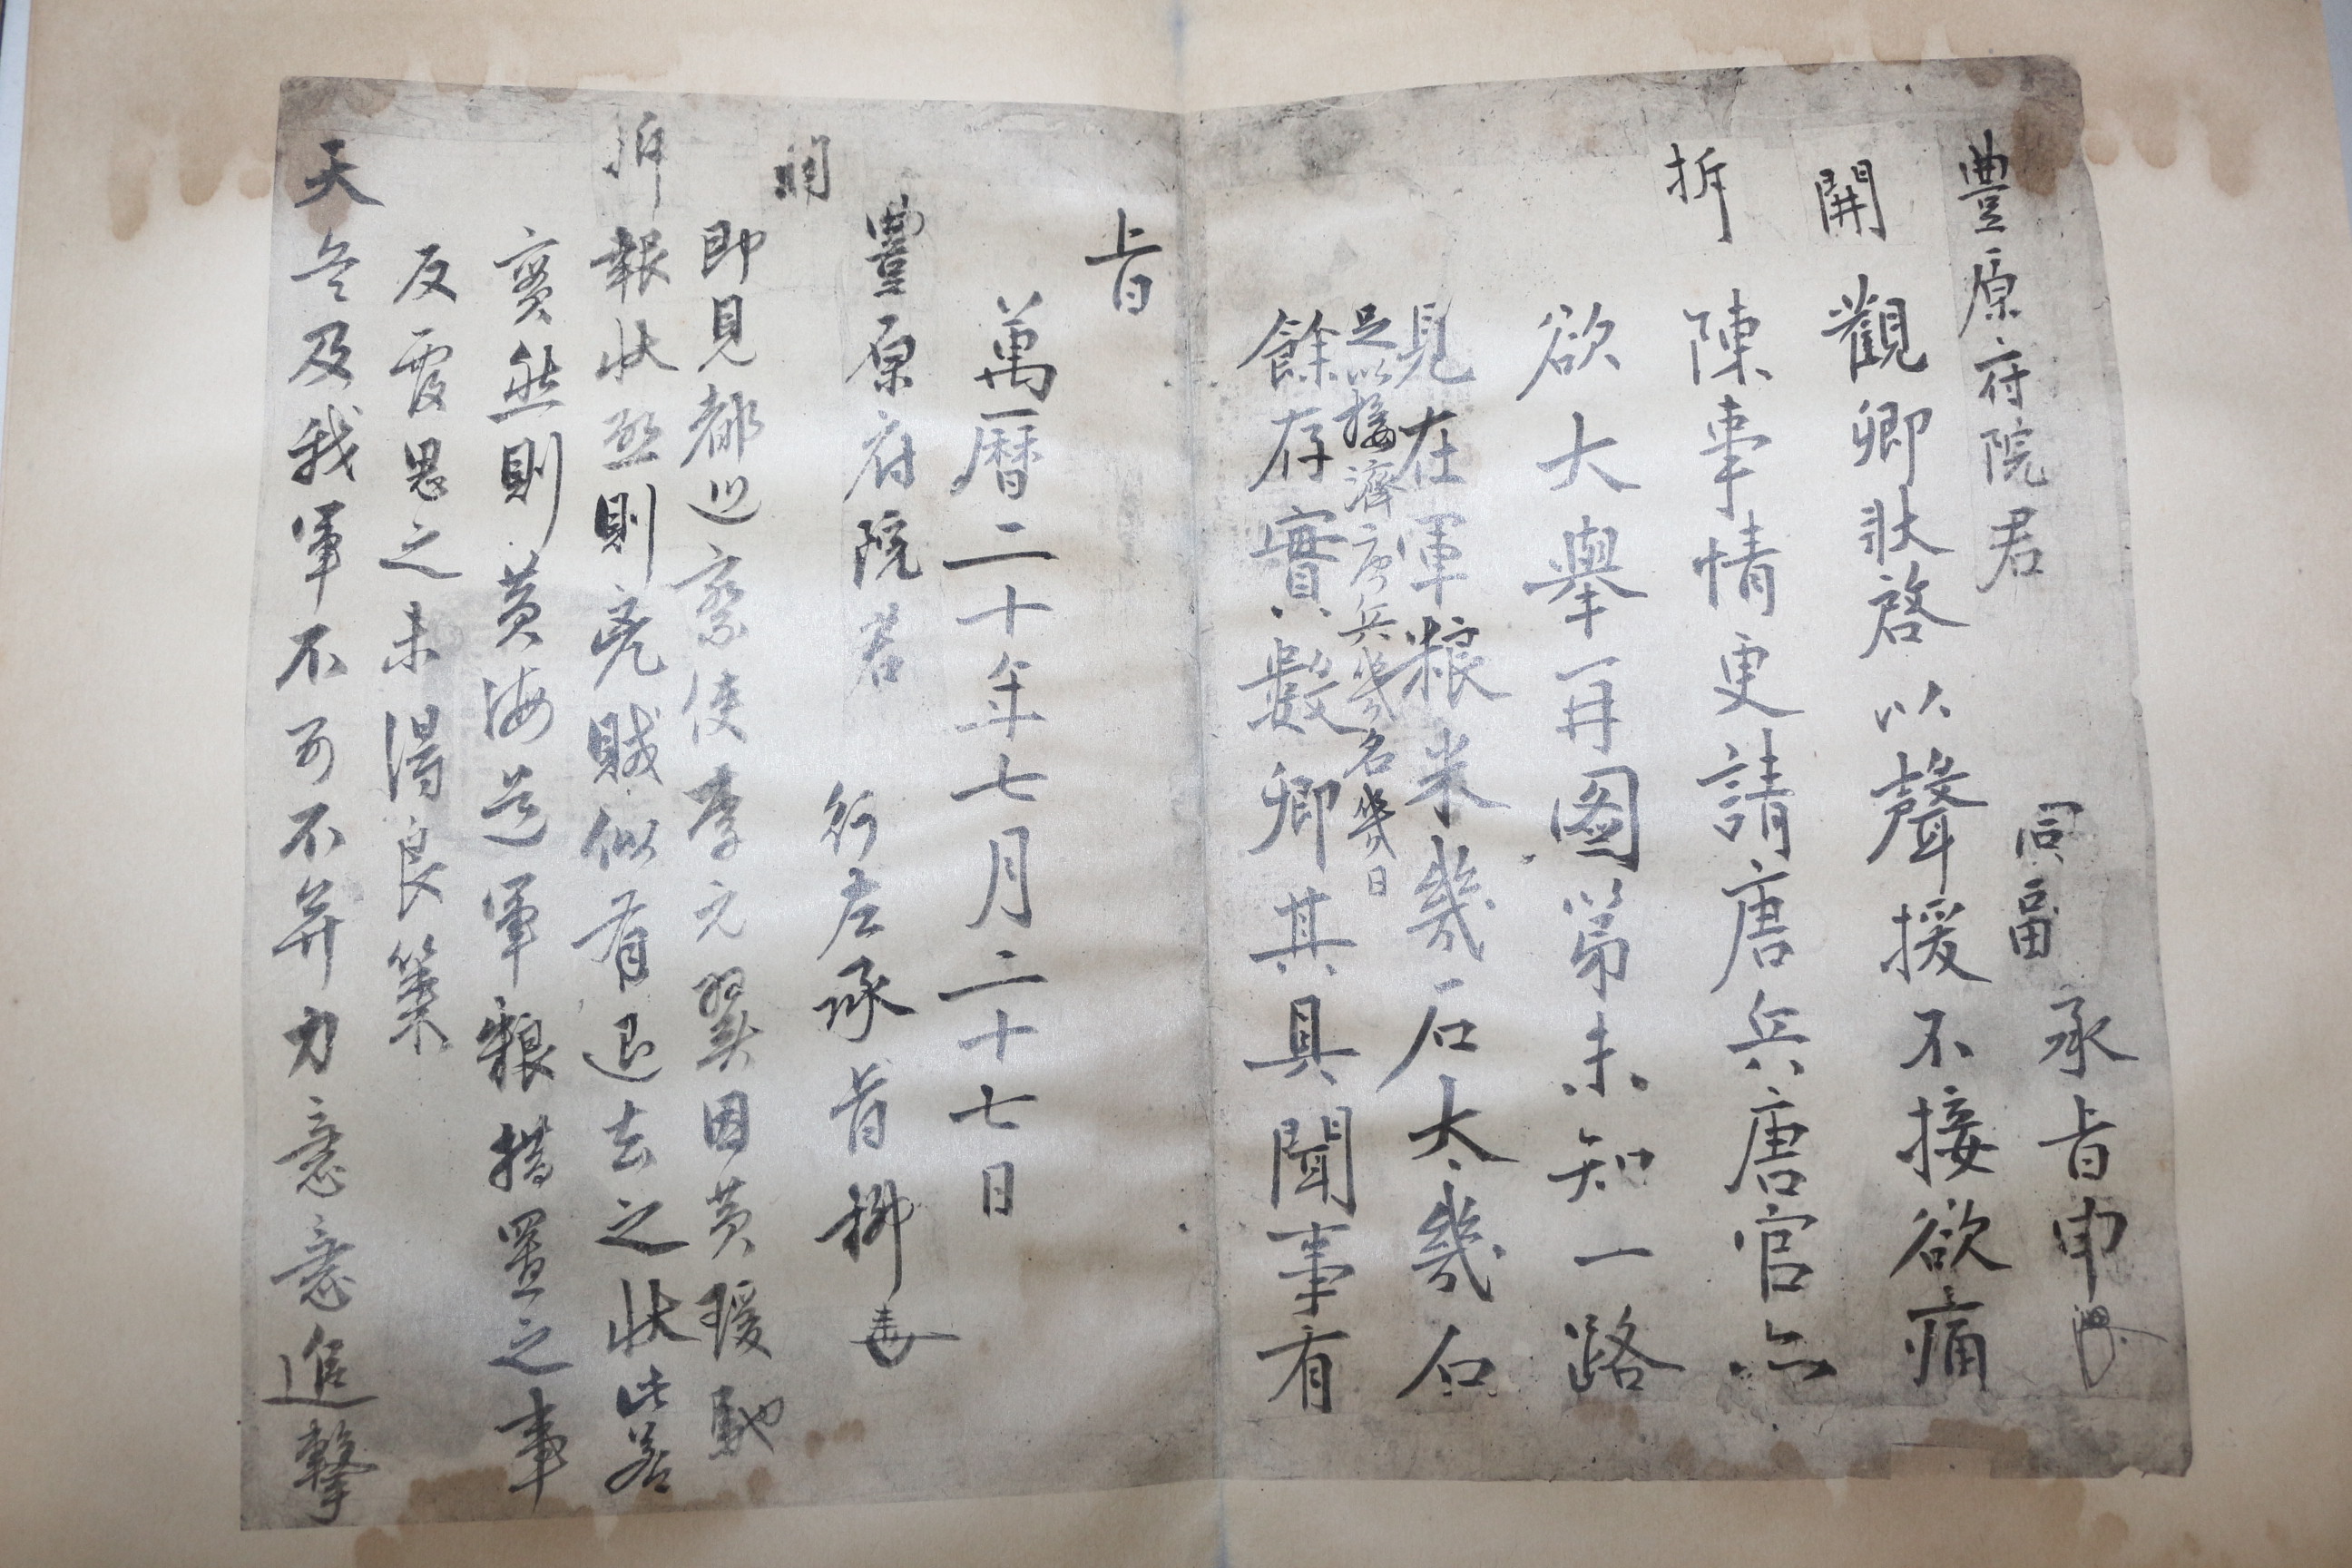 豐原府院君
同副承旨申
開
觀卿狀啓以聲援不接欲痛
拆
陳事情更請唐兵唐官亦
欲大舉再圖第未知一路
見在軍粮米幾石太幾石
足以接濟唐兵幾名幾日
餘存實數卿其具聞事有
旨
萬曆二十年七月二十七日
豐原府院君 行左承旨柳
開
即見都巡察使李元翼因黃瑗馳
拆
報狀啓則兇賊似有退去之狀此若
實然則黃海道軍粮措置之事
反覆思之未得良策
天兵及我軍不可不並力急急進擊